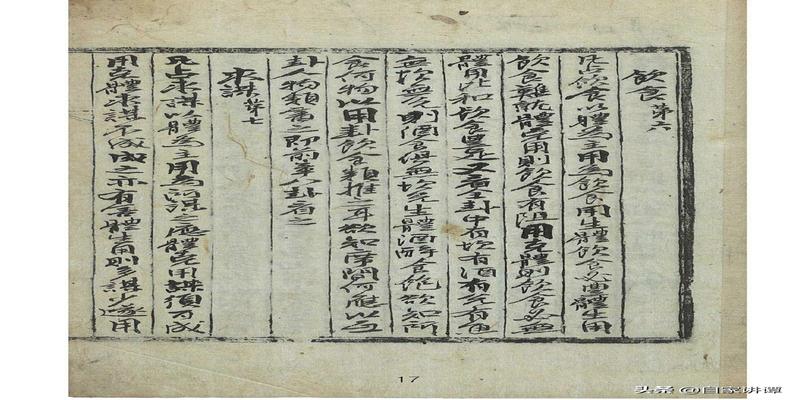 飲食 第六
凡占飲食以體為主用為飲食用生體飲食必豐體生用
飲食難就體克用則飲食有阻用克體則飲食必無
體用比和飲食豐足又看全卦中有坎有酒有兌有食
無坎無兌則酒食俱無坎兌生體酒醉食飽欲知所
食何物以用卦飲食類推之耳欲知席間何應以互
卦人物類看之即前八卦看之
求謀 第七
凡占求謀以體為主用為所謀之應體克用謀須可成
用克體求謀不成成之亦有害體生用則多謀少遂用
17
头条 @自家讲谭